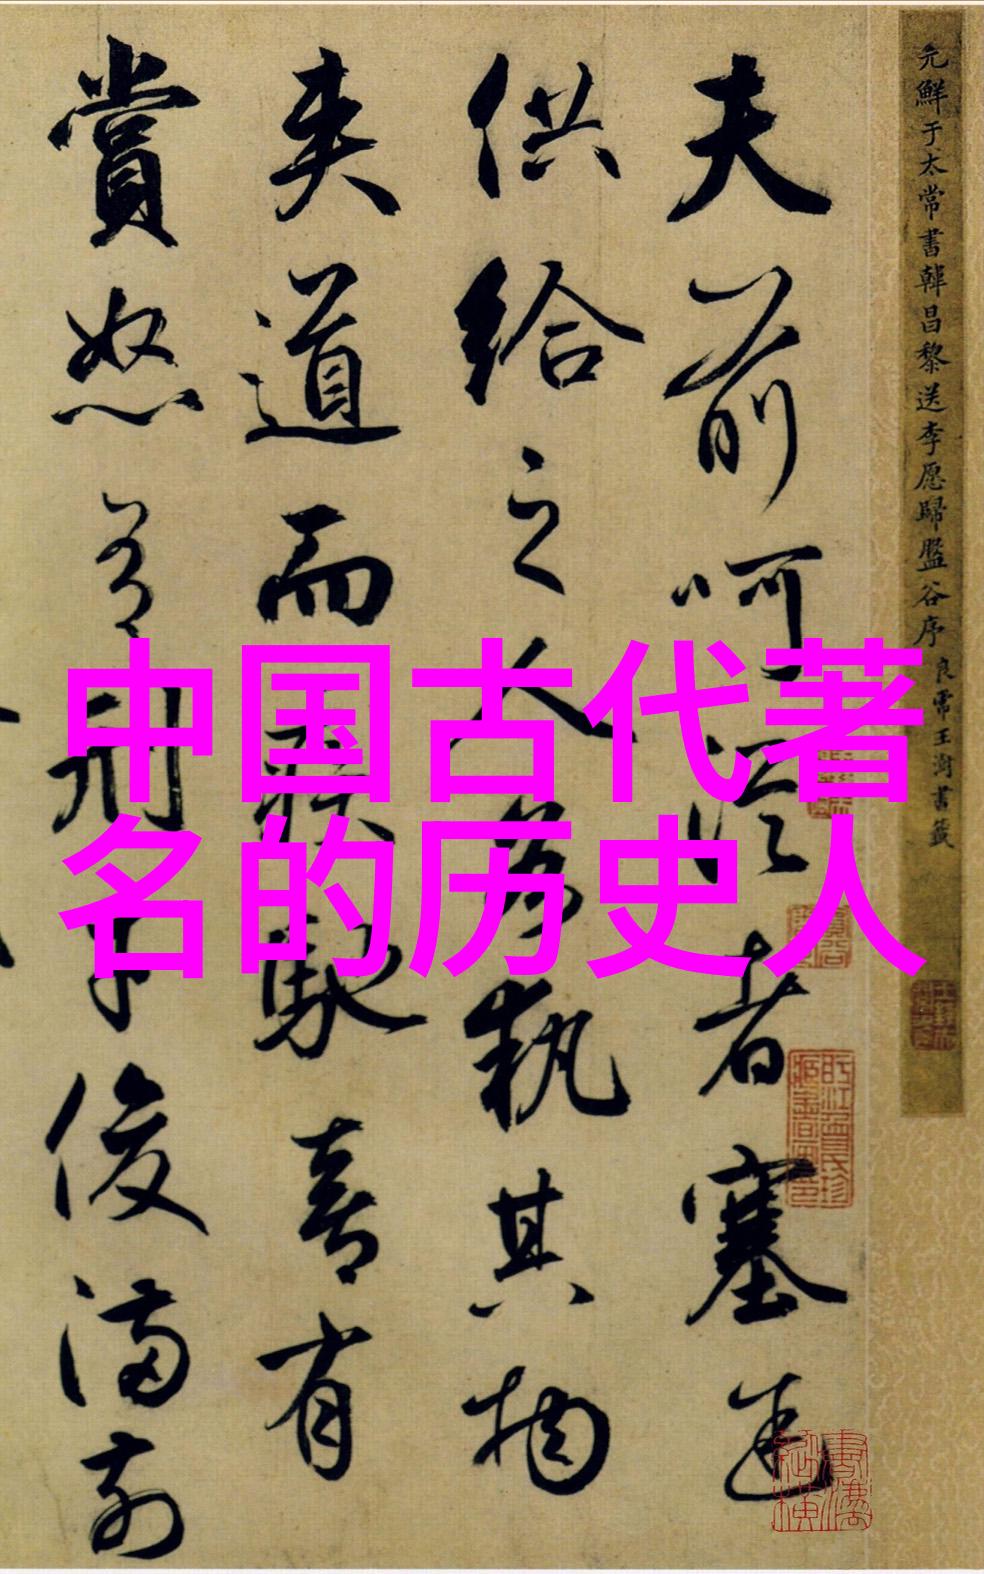 中国古代著
名的历史人
元鮮于太常書韓昌黎送李愿歸盤谷序 良常王澍書籤
夫前呵從者塞途
供給之人各執其物
夾道而疾馳喜有
賞怒有刑才俊滿前